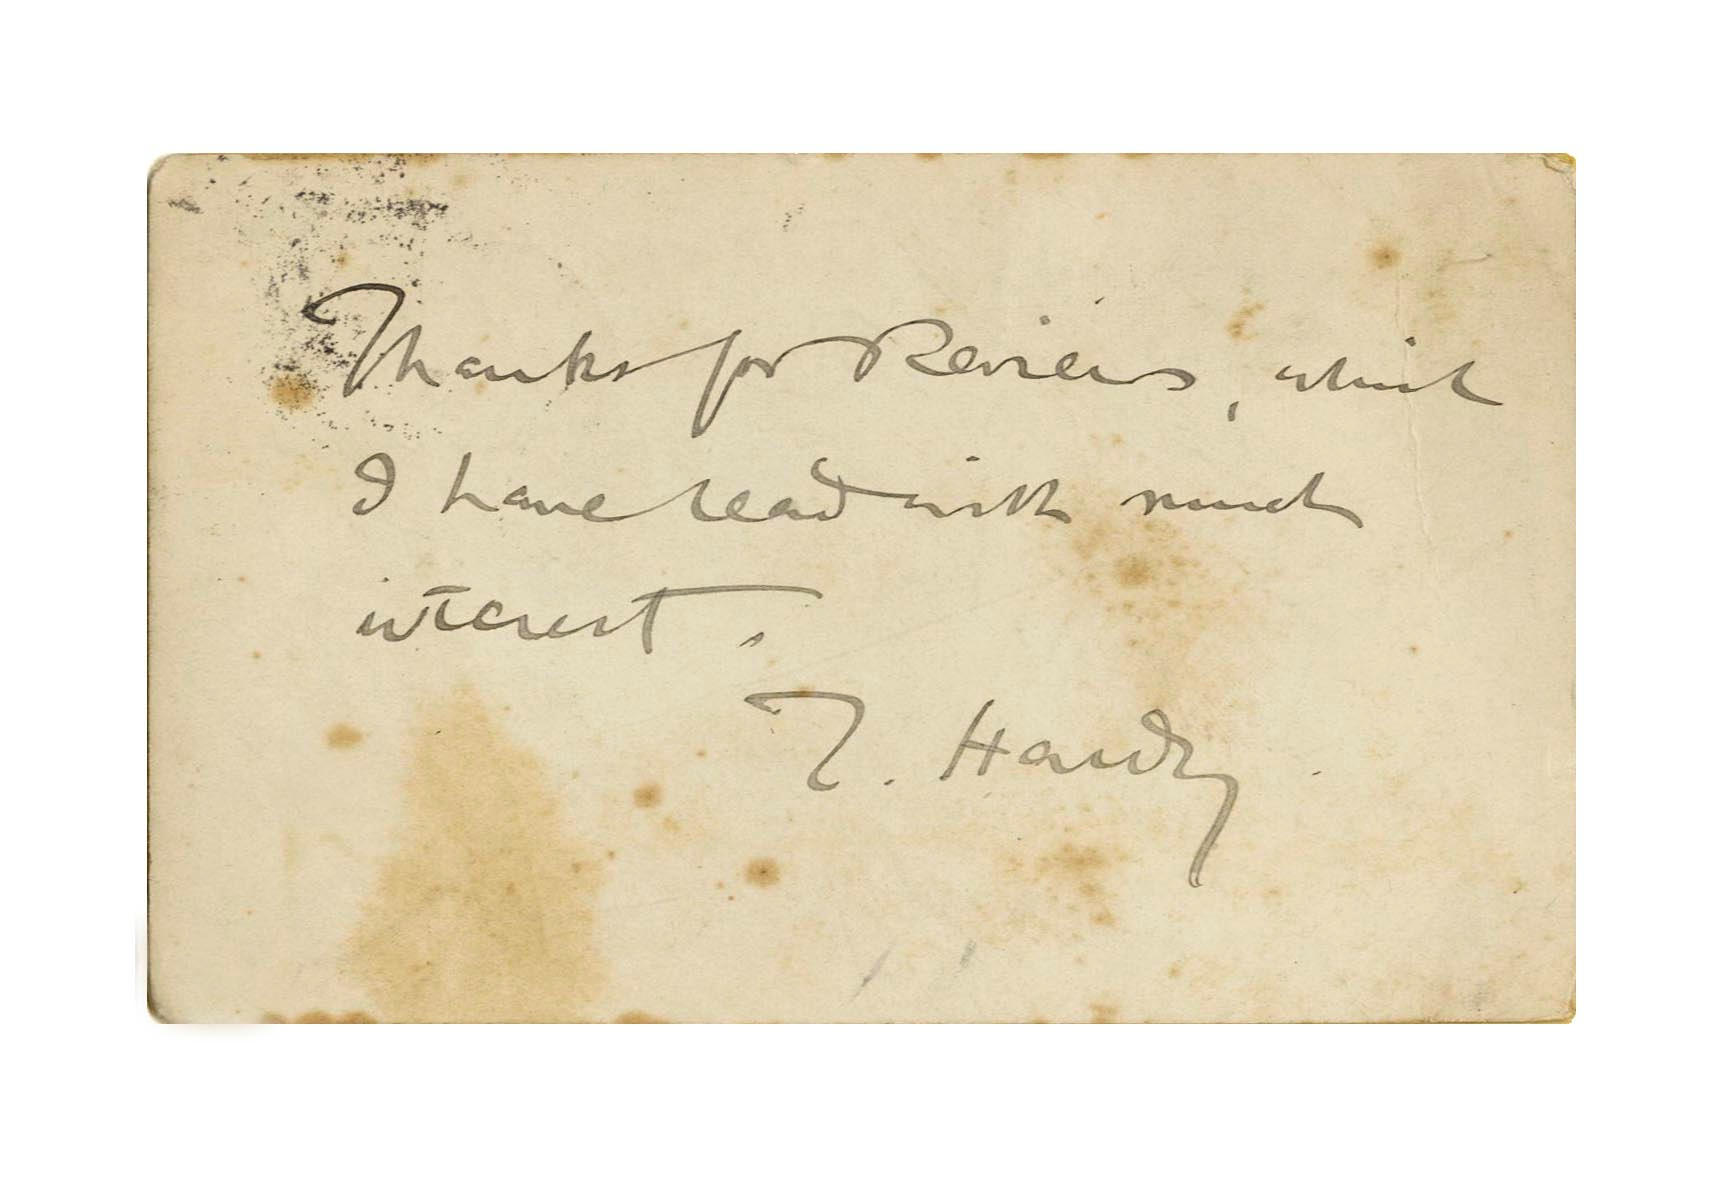 Thanks for Review, which
I have read with much
interest.
T. Hardy